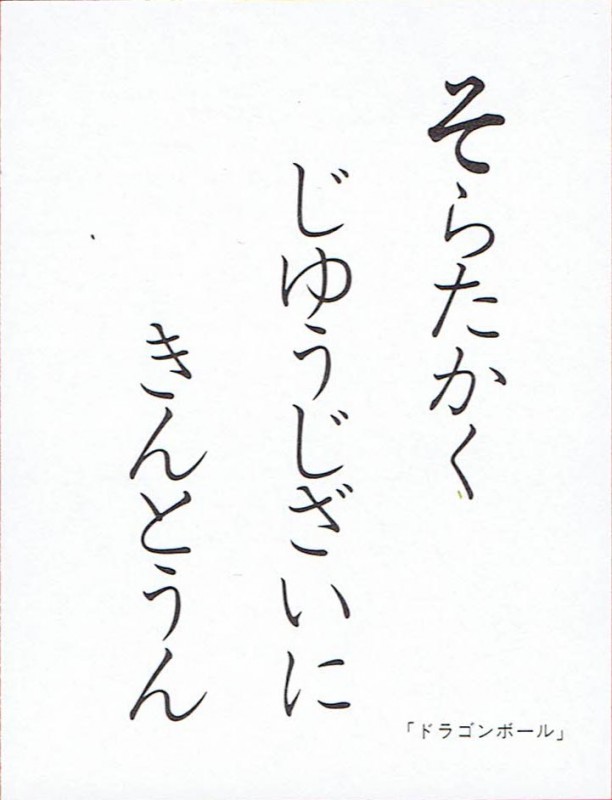 そらたかく
じゆうじざいに
きんとうん
「ドラゴンボール」